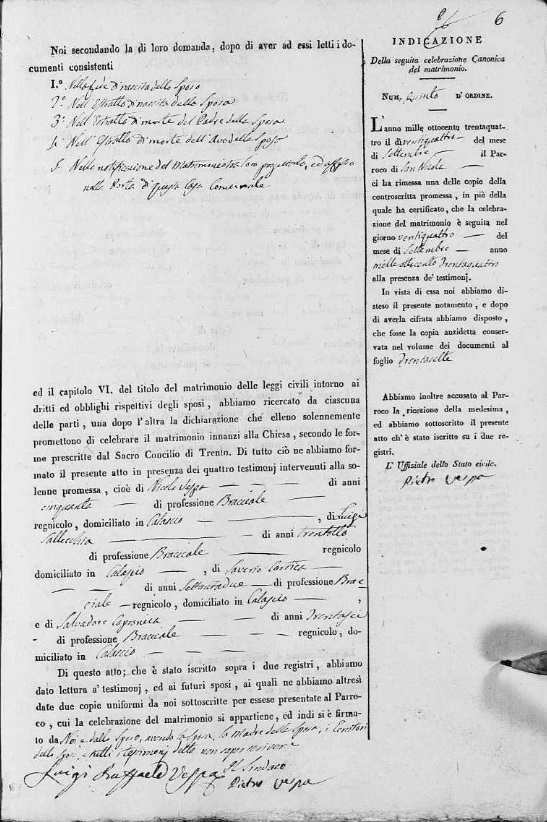 6
Noi secondando la di loro domanda, dopo di aver ad essi letti i do-
cumenti consistenti
1.° Nell'atto di nascita dello Sposo
2.° Nell'Estratto di nascita della Sposa
3.° Nell'Estratto di morte del Padre della Sposa
4.° Nell'Estratto di morte dell'Avo dello Sposo
5. Nelle notificazione del Matrimonio ed affisso
nella Porta di questa Casa Comunale
ed il capitolo VI. del titolo del matrimonio delle leggi civili intorno ai
dritti ed obblighi rispettivi degli sposi, abbiamo ricercato da ciascuna
delle parti, una dopo l'altra la dichiarazione che elleno solennemente
promettono di celebrare il matrimonio innanzi alla Chiesa, secondo le for-
me prescritte dal Sacro Concilio di Trento. Di tutto ciò ne abbiamo for-
mato il presente atto in presenza dei quattro testimonj intervenuti alla so-
lenne promessa, cioè di Nicola di anni
cinquanta di professione Bracciale
regnicolo, domiciliato in Calascio, di Luigi
di anni trentotto
di professione Bracciale regnicolo
domiciliato in Calascio, di Saverio
di anni Settantadue di professione Brac
ciale regnicolo, domiciliato in Calascio,
e di Salvadore di anni Trentasei
di professione Bracciale regnicolo, do-
miciliato in Calascio
Di questo atto, che è stato iscritto sopra i due registri, abbiamo
dato lettura a' testimonj, ed ai futuri sposi, ai quali ne abbiamo altresì
date due copie uniformi da noi sottoscritte per essere presentate al Parro-
co, cui la celebrazione del matrimonio si appartiene, ed indi si è firma-
to da Noi e dallo Sposo, avendo la Sposa, la Madre dello Sposo, i
e tutti i testimonj detto non saper scrivere
Luigi Raffaele Vespa Il Sindaco
Pietro Vespa
INDICAZIONE
Della seguita celebrazione Canonica
del matrimonio.
NUM. quinto D'ORDINE.
L'anno mille ottocento trentaquat-
tro il dì ventiquattro del mese
di Settembre il Par-
roco di San Nicola
ci ha rimessa una delle copie della
controscritta promessa, in piè della
quale ha certificato, che la celebra-
zione del matrimonio è seguita nel
giorno ventiquattro del
mese di Settembre anno
mille ottocento trentaquattro
alla presenza de' testimonj.
In vista di essa noi abbiamo di-
steso il presente notamento, e dopo
di averla cifrata abbiamo disposto,
che fosse la copia anzidetta conser-
vata nel volume dei documenti al
foglio Trentasette
Abbiamo inoltre accusato al Par-
roco la ricezione della medesima,
ed abbiamo sottoscritto il presente
atto ch'è stato iscritto su i due re-
gistri.
L'Uffiziale dello Stato civile.
Pietro Vespa